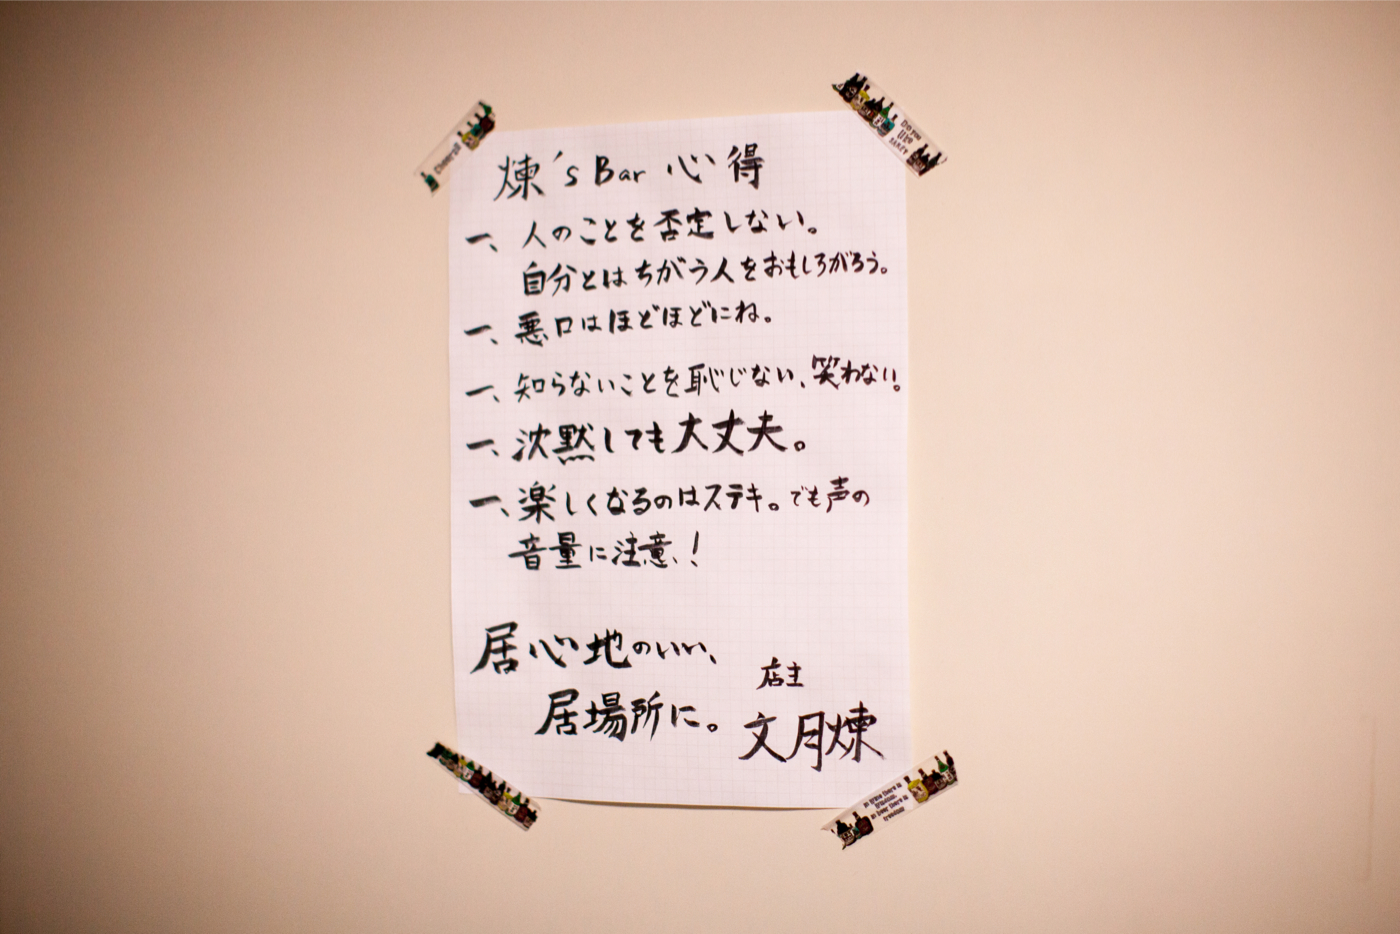 煉's Bar 心得
一、人のことを否定しない。
自分とはちがう人をおもしろがろう。
一、悪口はほどほどにね。
一、知らないことを恥じない、笑わない。
一、沈黙しても大丈夫。
一、楽しくなるのはステキ。でも声の
音量に注意、!
居心地のいい、
居場所に。
店主
文月煉
Cheers!!
Do you
like
In wine there is
wisdom,
in beer there is
freedom